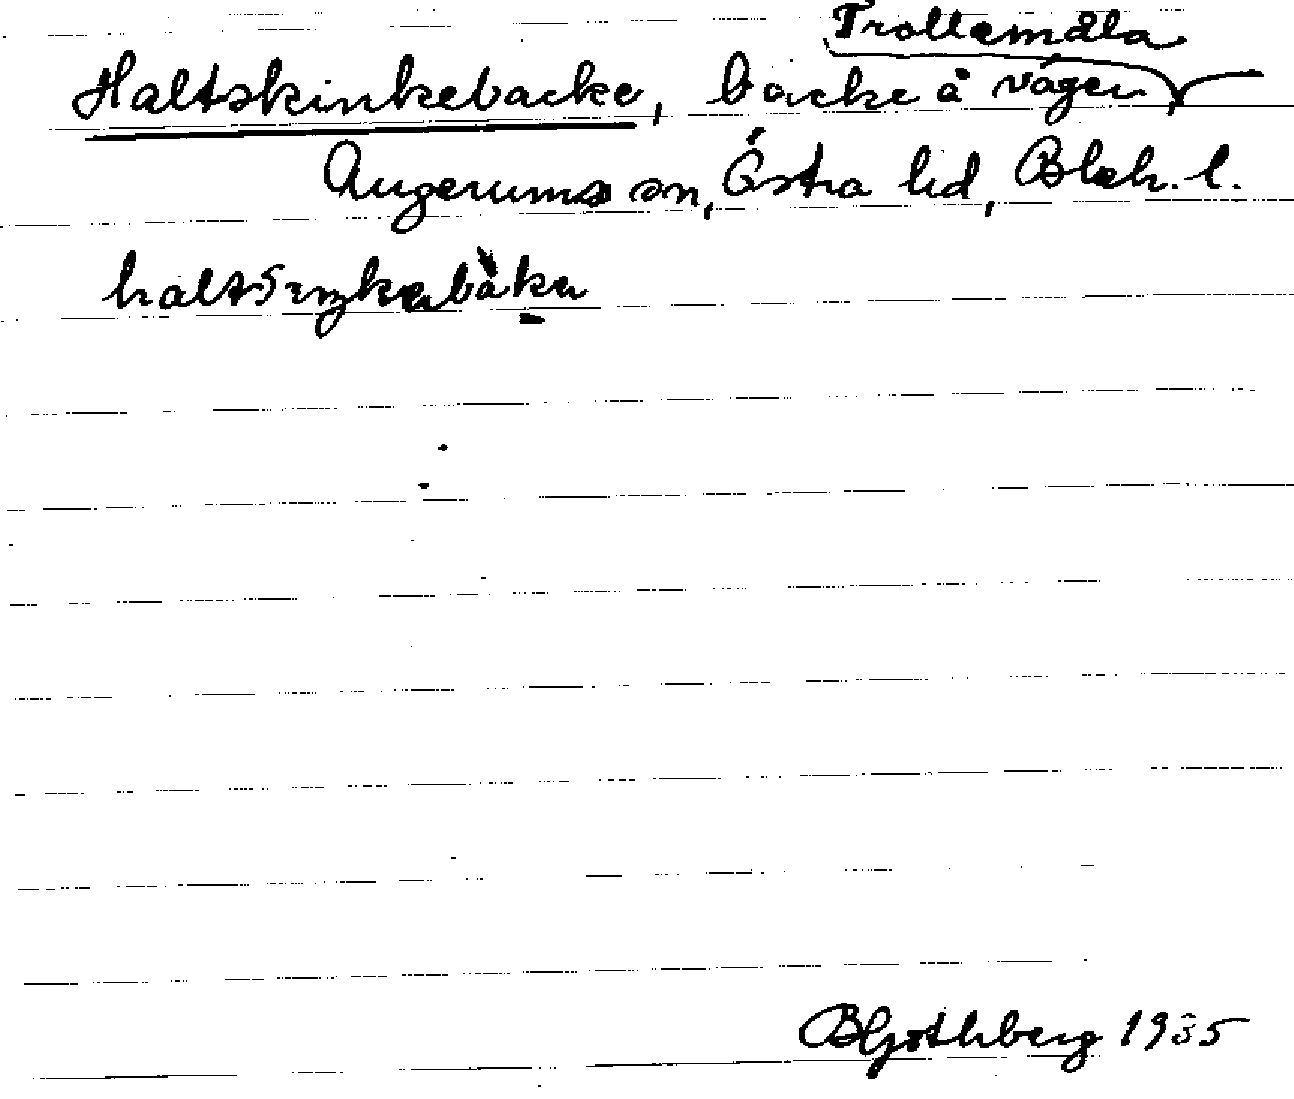 Trollemåla
Haltskinkebacke, backe å vägen
Augerums sn, Östra hd, Blek. l.
BGöthberg 1935